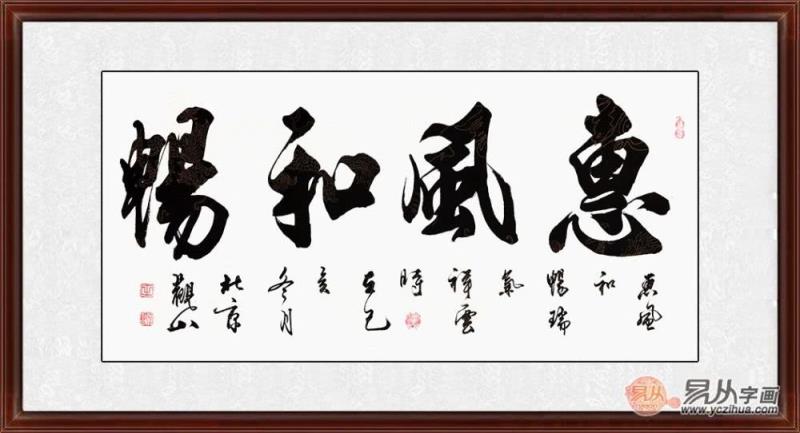 惠風和暢
惠風
和
暢瑞
氣
祥雲
時
在己
亥
冬月
北京
觀山
易从字画
www.yczihua.com